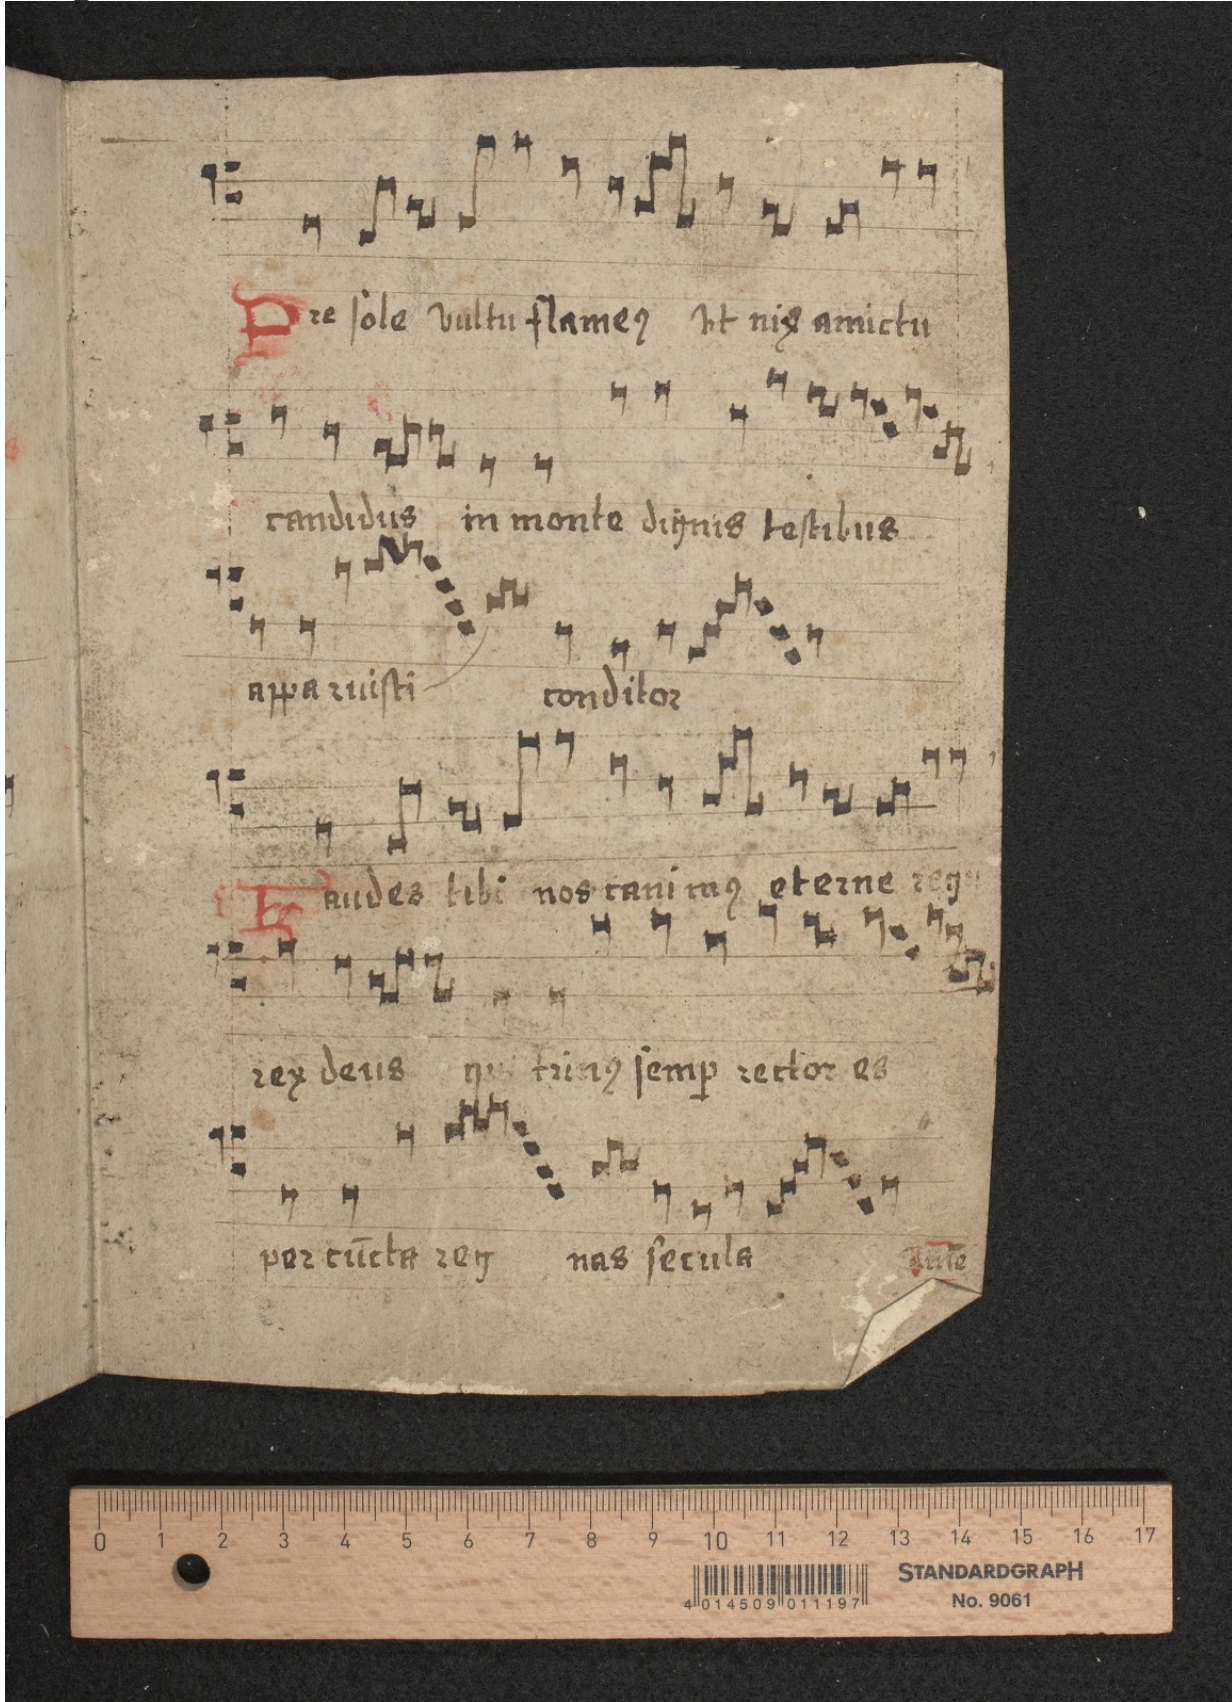 Pre sole vultu flameꝰ Vt nix amictu
candidus in monte dignis testibus
apparuisti conditor
Laudes tibi nos canimꝰ eterne
rex deus qui trinꝰ semꝑ rector es
per cūcta reg nas secula
0 1 2 3 4 5 6 7 8 9 10 11 12 13 14 15 16 17
STANDARDGRAPH
No. 9061
4 014509 011197